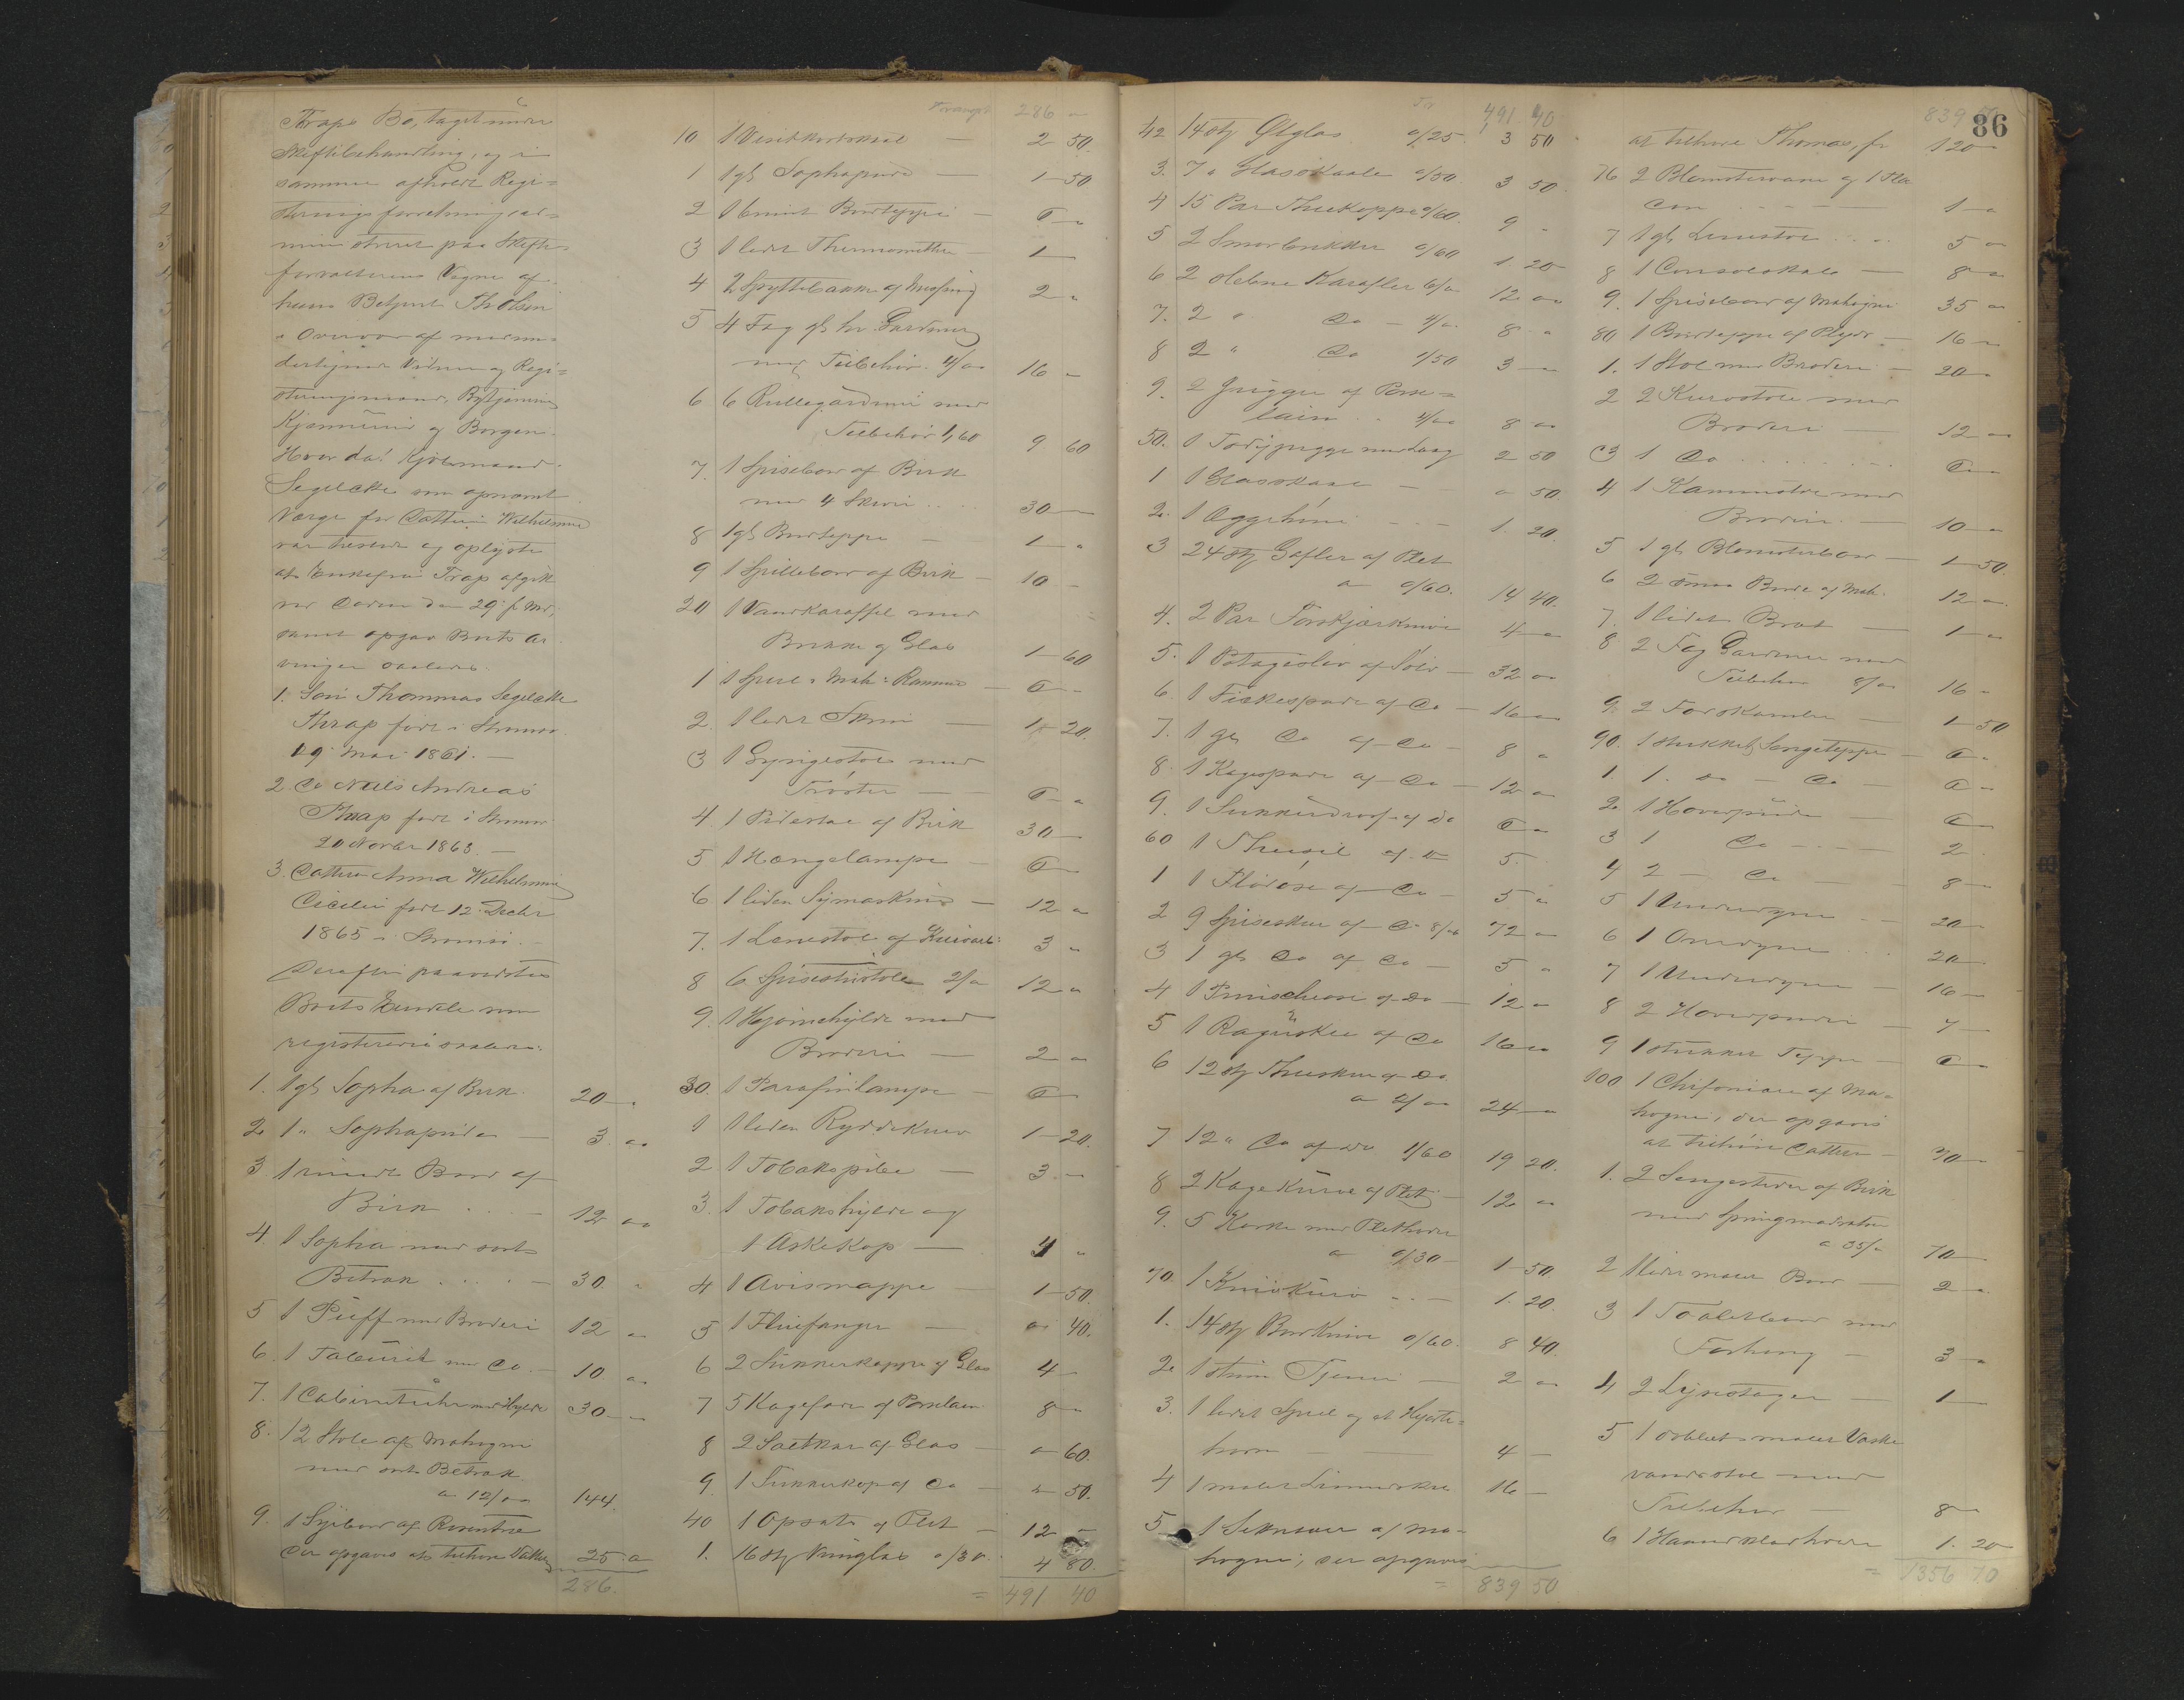 Thraps Bo, taget under
Skiftebehandling, og i
samme afholdt Regi=
streringsforretning, ad=
ministreret paa Skifte-
forvalterens Vegne af
hans Betjent Th Olsen
i Overvær af medun=
dertegnede Vidner og Regi=
streringsmænd, Bytjenerne
og Borgen.
Hvor da! Kjøbmand
Segelcke som opnævnt
Værge for Datteren Wilhelmine
var tilstede og oplyste
at Enkefru Trap afgik
ved Døden den 29 f. Md,
samt opgav Boets Ar
vinger saaledes.
1. Søn Thommas Segelcke
Thrap født i Tromsø
19 Mai 1861. —
2 Do Niels Andreas
Thrap født i Tromsø
20 Novbr 1863. —
3. Datteren Anna Wilhelmine
Cicilie født 12 Decbr
1865 i Tromsø. —
Derefter paavistes
Boets Eiendele som
registreredes saaledes:
1. 1 gl Sopha af Birk 20 "
2. 1 " Sophapude — 3. "
3 1 rundt Bord af
Birk . . . — 12 "
4. 1 Sopha med sort
Betræk . . . — 30. "
5 1 Puff med Broderi 12 "
6. 1 Taburet med Do. — 10 "
7. 1 Cabinetsuhr med Hylde 30 — "
8. 12 Stole af Mahogni
med sort Betræk
a 12/00 144.
9. 1 Sybord af Rosentræ
der opgaves at tilhøre Datteren 25. "
286.
Transport 286 "
10 1 Visitkortskaal — 2 50.
1 1 gl Sophapude — 1 50
2 1 Bordteppe — 6 "
3 1 lidet Thermometer — 1 —
4 2 Spyttebakker af Messing 2 "
5 4 Fag gl hv. Gardiner
med Tilbehør. 4/00 16 "
6 6 Rullegardiner med
Tilbehør 1,60 9. 60
7. 1 Spisebord af Birk
med 4 Skiver . . . 30 —
8 1 gl Bordteppe — 1 "
9 1 Spillebord af Birk — 10 -
20 1 Vandkaraffel med
Bakke og Glas 1 60
1 1 Speil i Mah: Ramme — 6 -
2. 1 lidet Skrin — 1 20.
3 1 Gyngestol med
Trøster — 6 "
4. 1 Pidestal af Birk 30 —
5 1 Hængelampe — 6 —
6 1 liden Symaskine — 12 "
7. 1 Lænestol af Kurvarb: 3 "
8 6 Spisestuestole 2/" 12 "
9. 1 Hjørnehylde med
Broderi — 2 "
30. 1 Parafinlampe — 6 —
1 1 liden Ryddekurv 1 20.
2 1 Tobakspibe — 3. —
3. 1 Tobakshylde og
1 Askekop — 4 "
4 1 Avismappe — 1 50.
5 1 Fluefanger — " 40.
6 2 Sukkerkopper af Glas 4 —
7 5 Kagefade af Porselæn 8 "
8 2 Saltkar af Glas " 60.
9. 1 Sukkerkop af Do — " 50.
40 1 Opsats af Plet — 12 —
1. 16 stk Vinglas a/30. 4 80.
= 491 40
Tr 491. 40
42 14 stk Ølglas a/25. 3 50
3. 7 " Glasskaale a/50 3 50.
4 15 Par Theekopper a/60. 9 "
5 2 Smørbrikker a/60 1 20
6 2 slebne Karafler 6/" 12 "
7. 2 " Do — 4/" 8 "
8 2 " Do 1/50 3 —
9. 2 Jugger af Porse=
læin . . 4/00 8 "
50. 1 Todyjugge med Laag 2 50
1 1 Glasvase — " 50.
2. 1 Æggehøne — 1. 20.
3 24 stk Gafler af Plet
a a/60. 14 40.
4. 2 Par Forskjærknive 4 "
5. 1 Potageslev af Sølv — 32 "
6. 1 Fiskespade af Do — 16 "
7. 1 gl Do af Do — 8 "
8. 1 Kagespade af Do — 12 "
9. 1 Sukkerdrys af Do 6 "
60 1 Theesil af Do 5. "
1 1 Fløteøse af Do — 5 "
2 9 Spiseskeer af Do 8/" 72 "
3 1 gl Do af Do — 5 "
4 1 Punscheøse af Do — 12 "
5 1 Raguskee af Do 16 "
6 12 stk Theeskeer af Do
a 2/00 24 "
7 12 " Do af Do 1/60 19 20.
8 2 Kagekurve af Plet 12 "
9. 5 Korke med Plethoveder
a a/30 — 1 50
70. 1 Knivkurv — 1. 20.
1. 14 stk Bordknive a/60. 8 40.
2. 1 Tjener — 2 "
3. 1 lidet Speil og et Hjorte=
horn — 4 —
4 1 16 —
5 1 af Ma=
hogni; der opgaves
= 839 50
839 50 86
at tilhøre Thomas, fr 120 —
76 2 Blomstervaser og 1 Fla
con — 1 "
7 1 gl Lænestol . . 5 "
8 1 — 8 "
9. 1 Spisebord af Mahogni 35 "
80 1 Bordteppe af Plyds — 16 "
1. 1 Stol med Broderi — 20 "
2 2 Kurvstole med
Broderi — 12 "
3 1 Do . . . . . 6 —
4 1 med
Broderi — 10 "
5 1 gl Blomsterbord — 1 50.
6 2 smaa Borde af Mah. 12 "
7. 1 lidet Bord — 1 "
8 2 Fag Gardiner med
Tilbehør 8/" 16 "
9. 2 — 1 50
90. 1 strikket Sengeteppe — 6 "
1. 1. do — Do — 6 "
2. 1 Hovedpude — 6 —
3 1 Do — 2
4 2 — Do — 8 "
5 1 Underdyne — 20 "
6 1 Overdyne . . . 20 —
7 1 Underdyne — 16 —
8 2 Hovedpuder — 4 "
9 1 strikket Teppe — 6 —
100 1 Chifoniere af Ma=
hogni, der opgaves
at tilhøre Datteren —
1. 2 Sengesteder af Birk
med Springmadratser
a 35/" 70 —
2 1 lidet malet Bord — 2 "
3 1 Toaletbord med
Forheng — 3 "
4 2 Lysestager — 1 —
5 1 dobbelt malet Vaske
vandsstol med
Tilbehør — 8 "
6 1 1. 20
= 1356 70